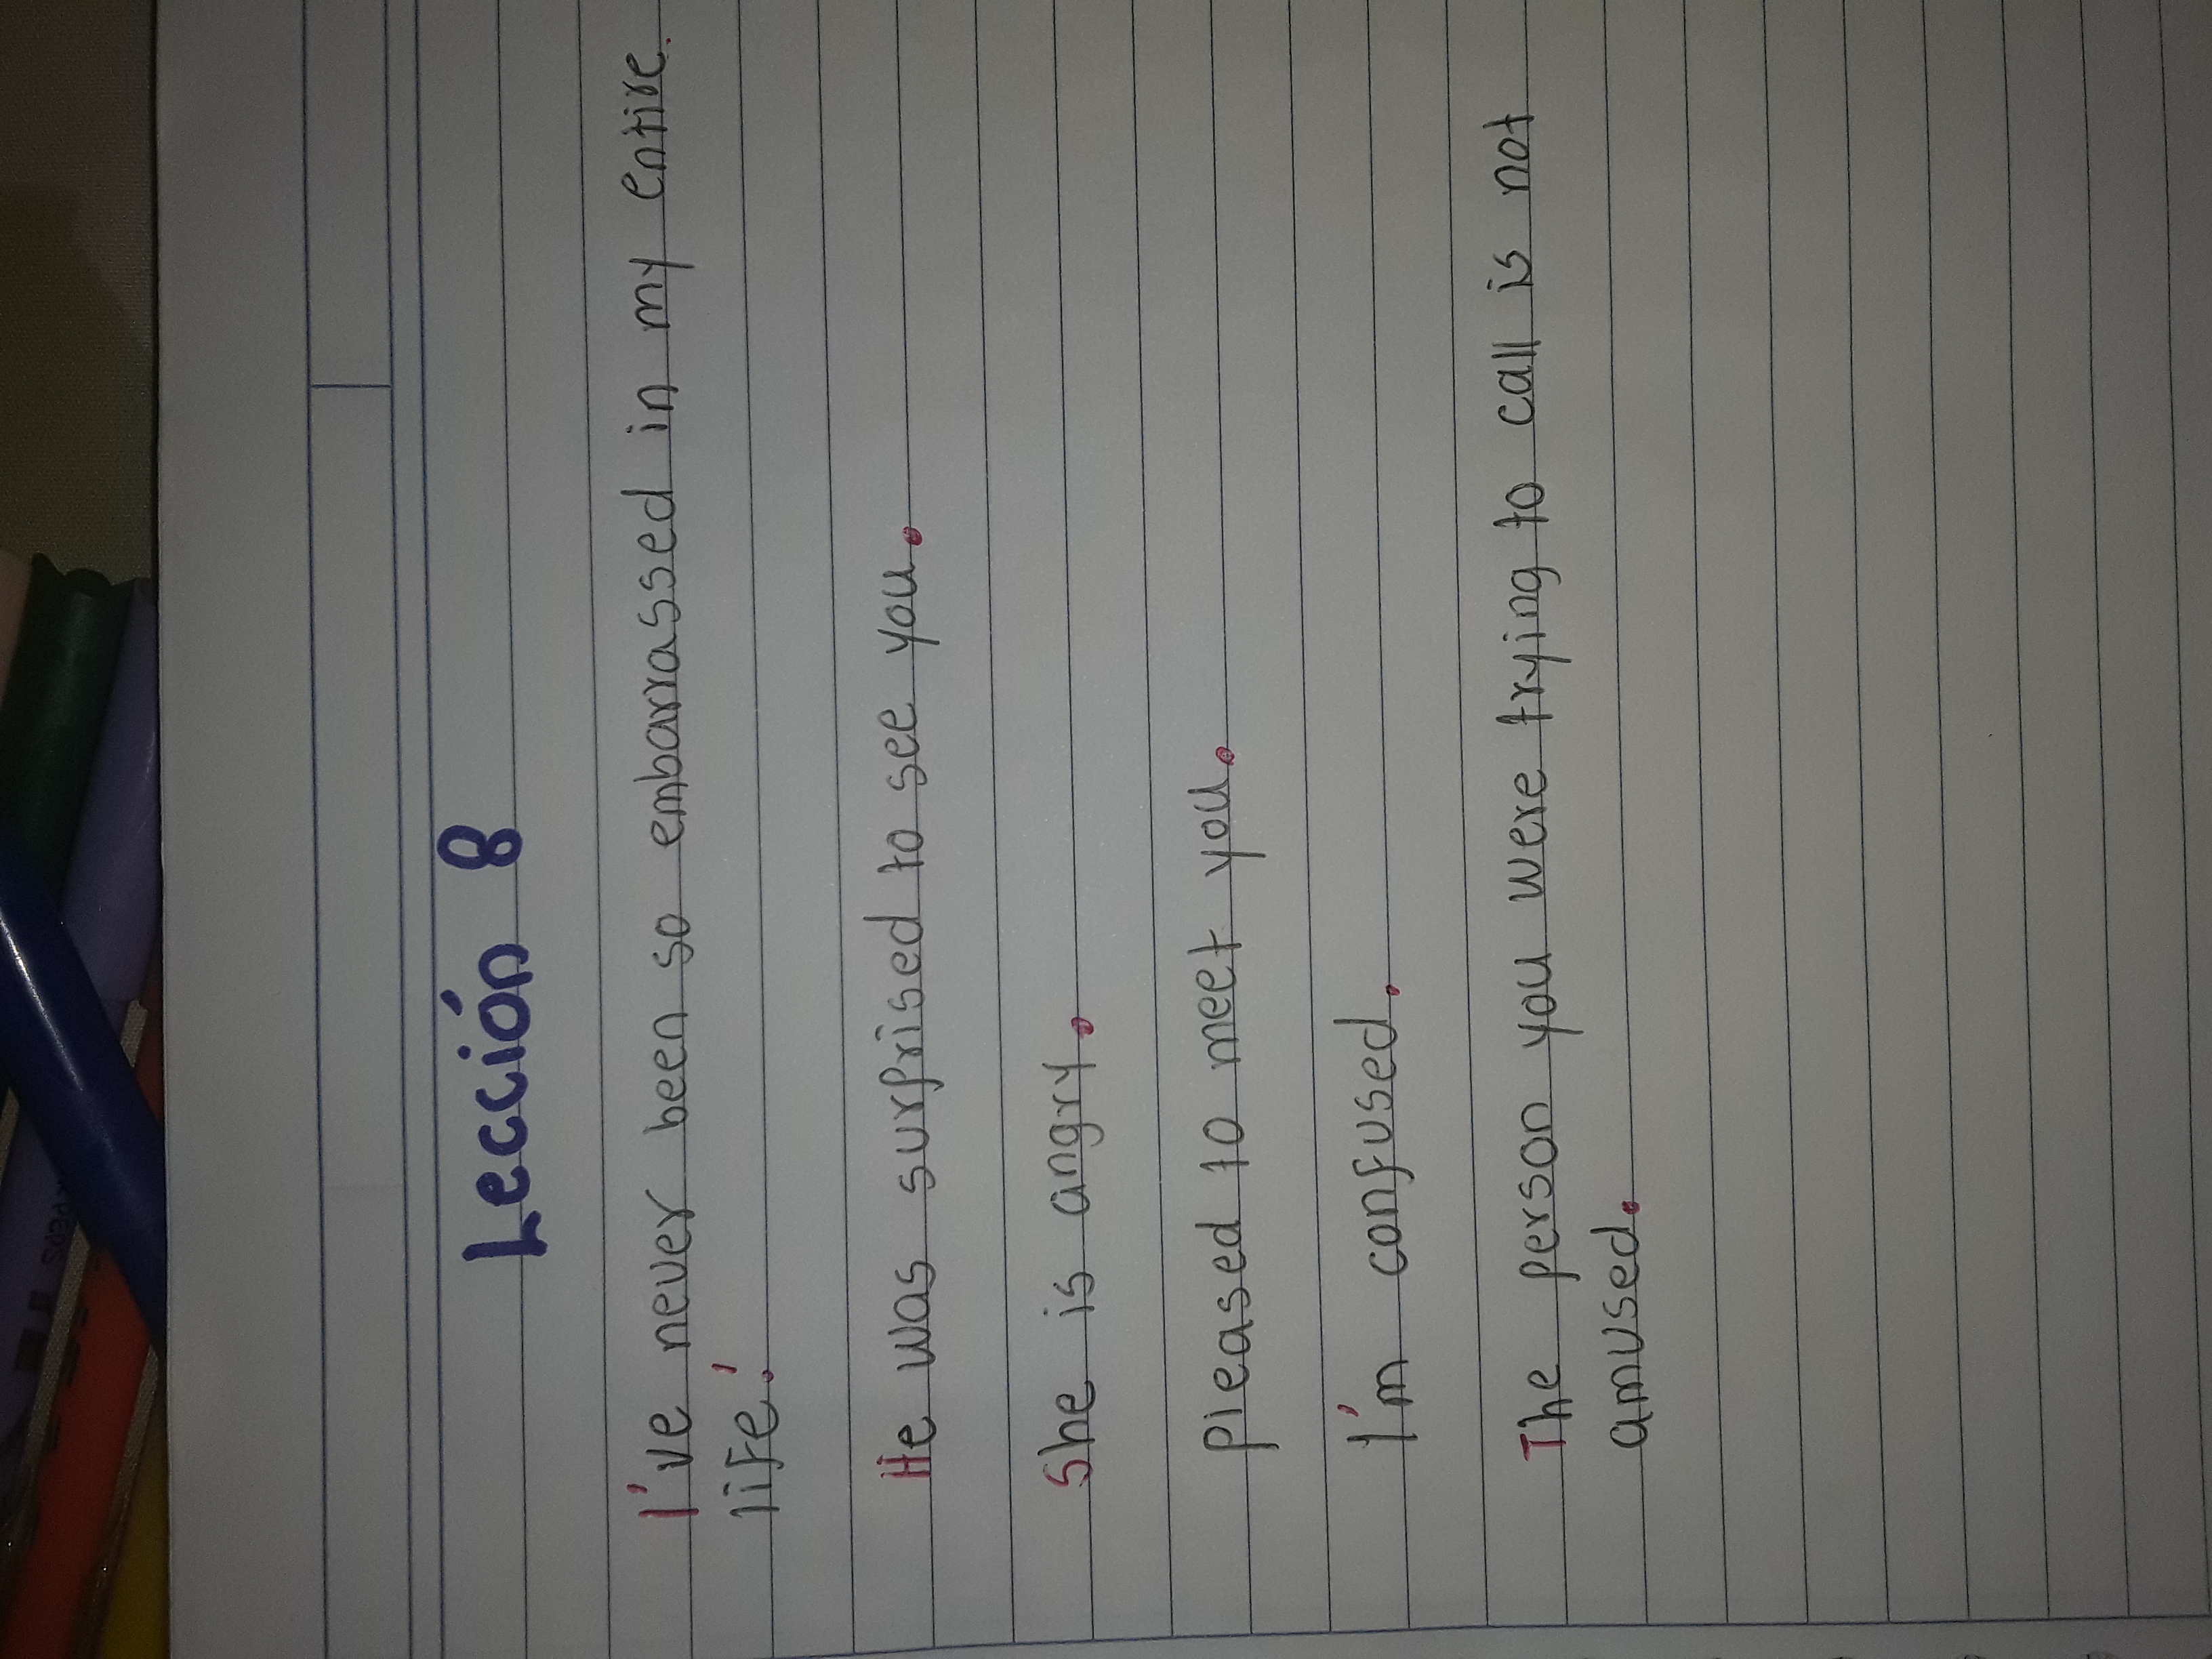 Lección 8
I've never been so embarrassed in my entire.
life!
He was surprised to see you.
She is angry.
pleased to meet you.
I'm confused.
The person you were trying to call is not
amused.